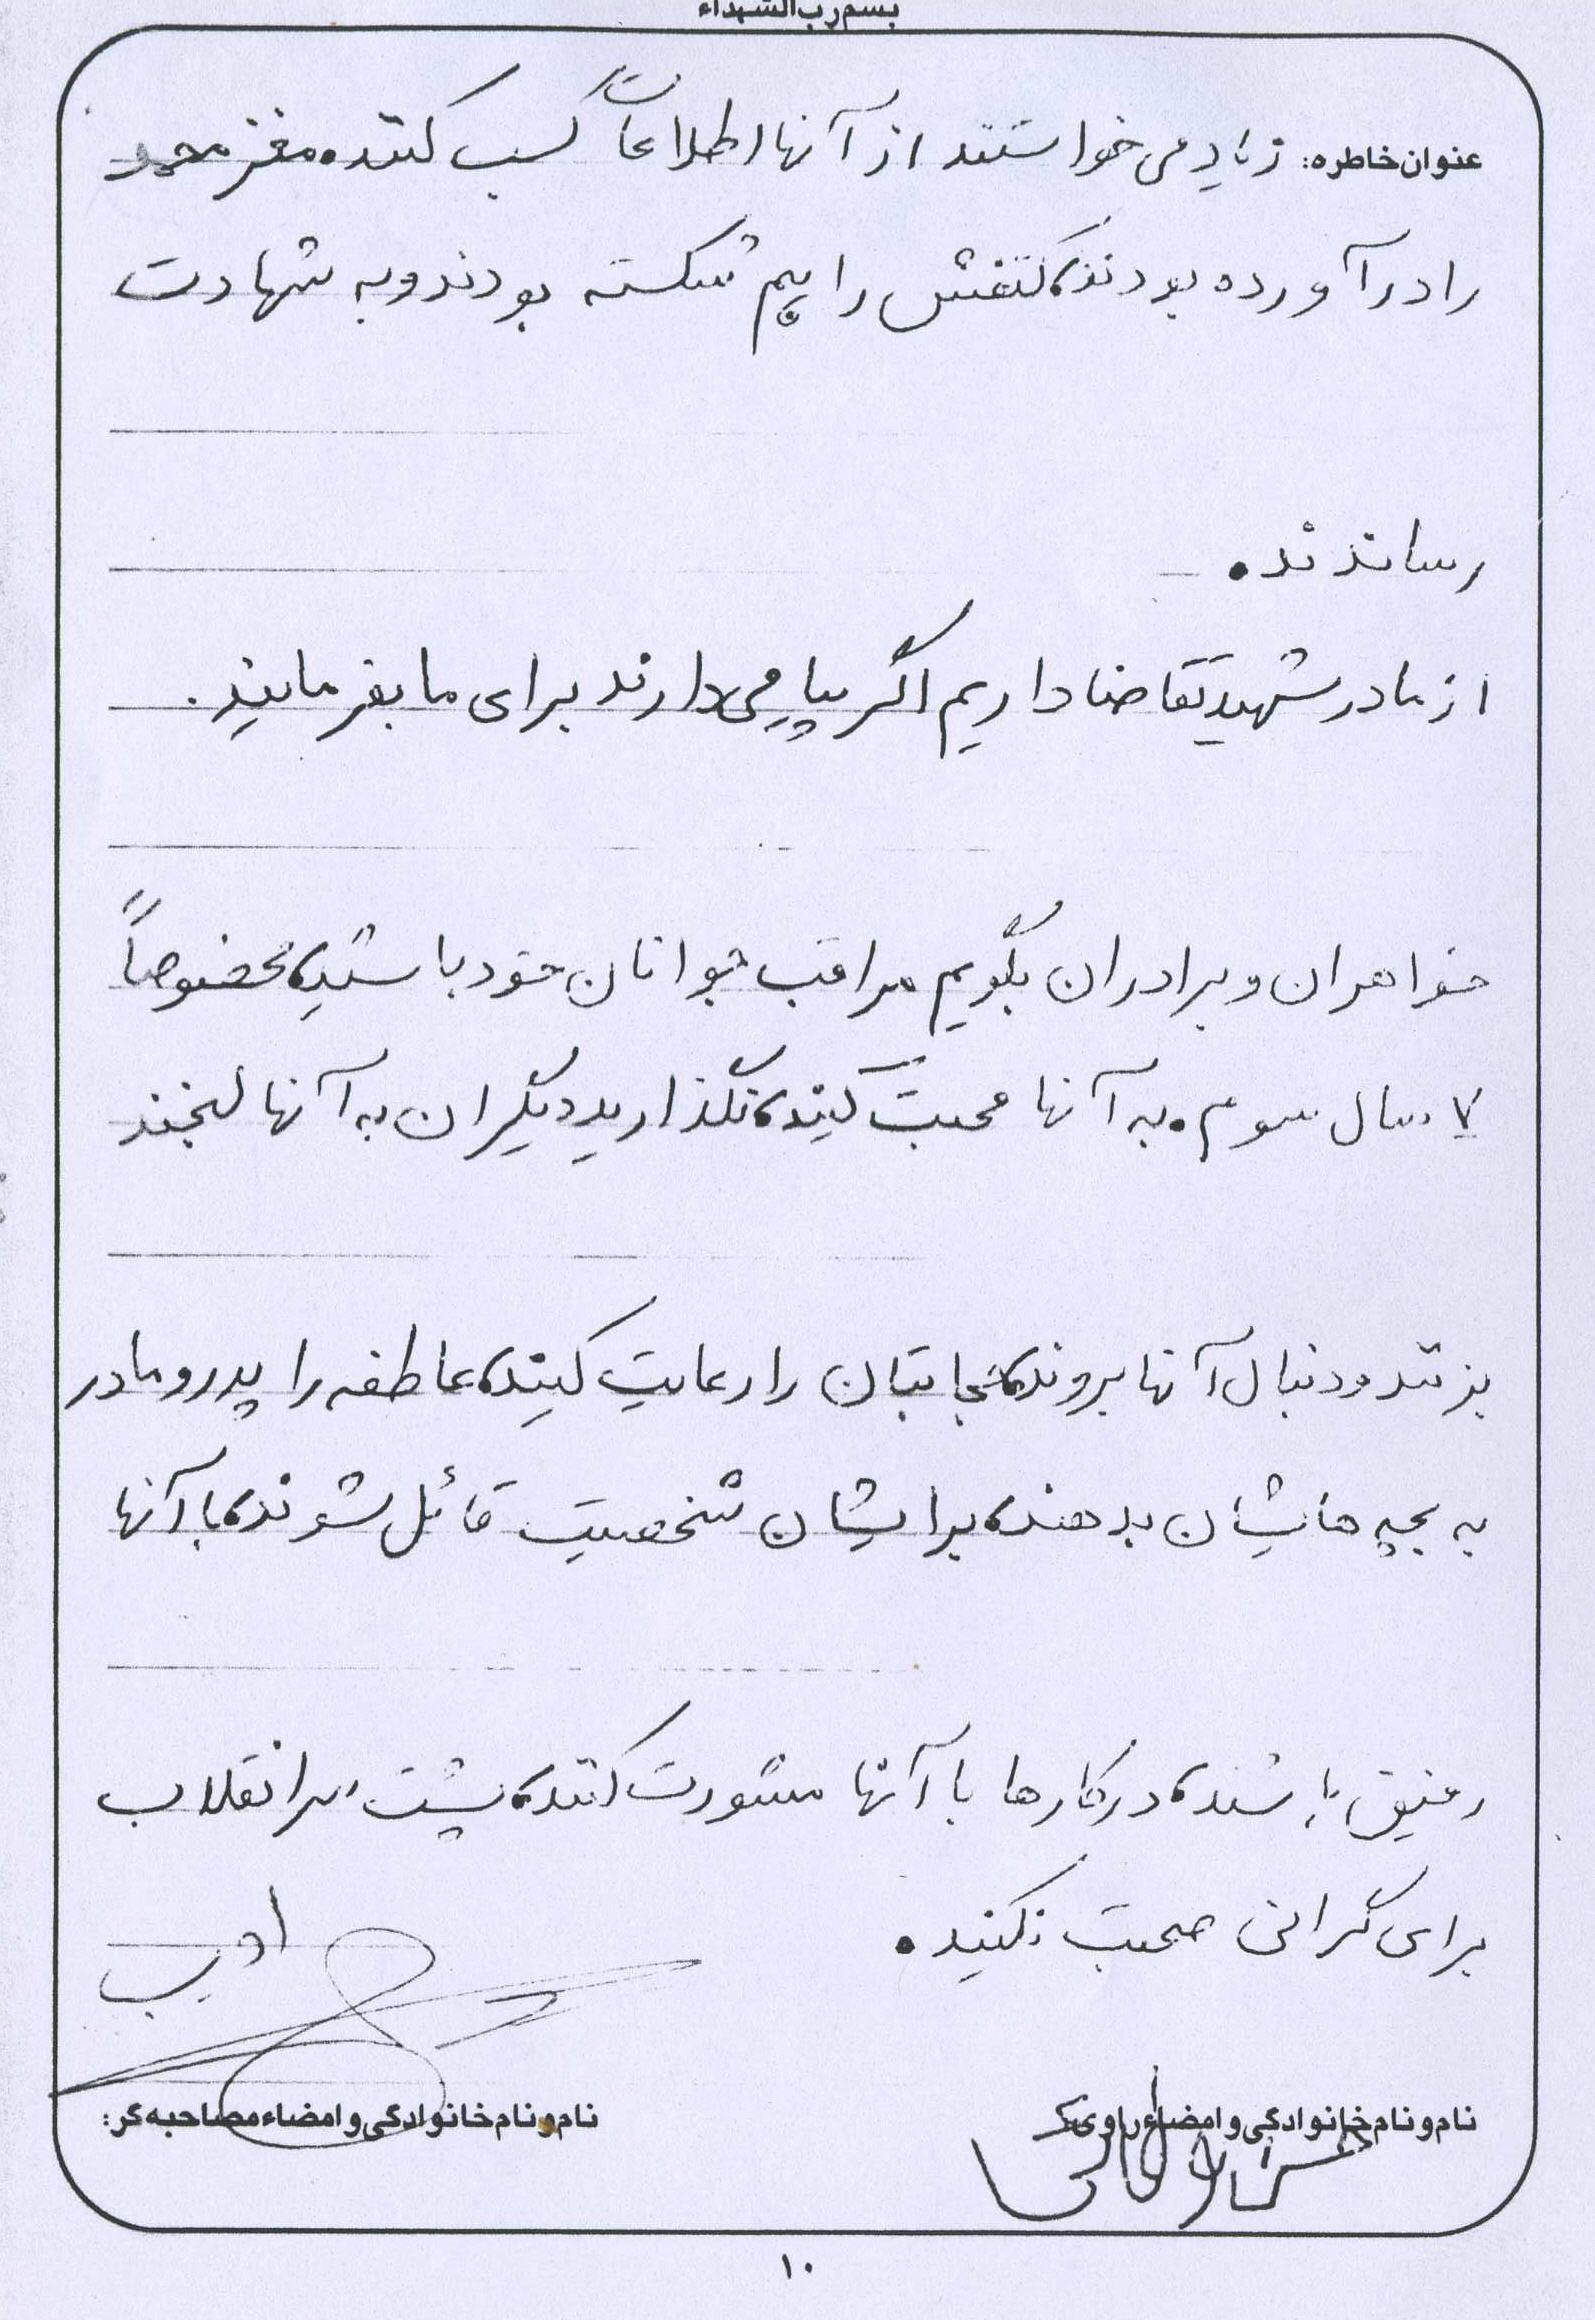 بسم رب الشهداء
عنوان خاطره: زیاد می خواستند از آنها اطلاعاتاً کسب کنند. مغز محمد
را در آورده بودند، کتفش را هم شکسته بودند و به شهادت
رساندند.
از مادر شهید تقاضا داریم اگر پیامی دارند برای ما بفرمایند.
خواهران و برادران بگویم مراقب جوانان خود باشید، مخصوصاً
۷ سال سوم. به آنها محبت کنید، نگذارید دیگران به آنها لبخند
بزنند و دنبال آنها بروند، حجابتان را رعایت کنید، عاطفه را پدر و مادر
به بچه هایشان بدهند، برایشان شخصیت قائل شوند، با آنها
رفیق باشند، در کارها با آنها مشورت کنند، پشت سر انقلاب
برای گرانی صحبت نکنید.
ادیب
نام و نام خانوادگی و امضاء راوی:
نام و نام خانوادگی و امضاء مصاحبه گر:
۱۰